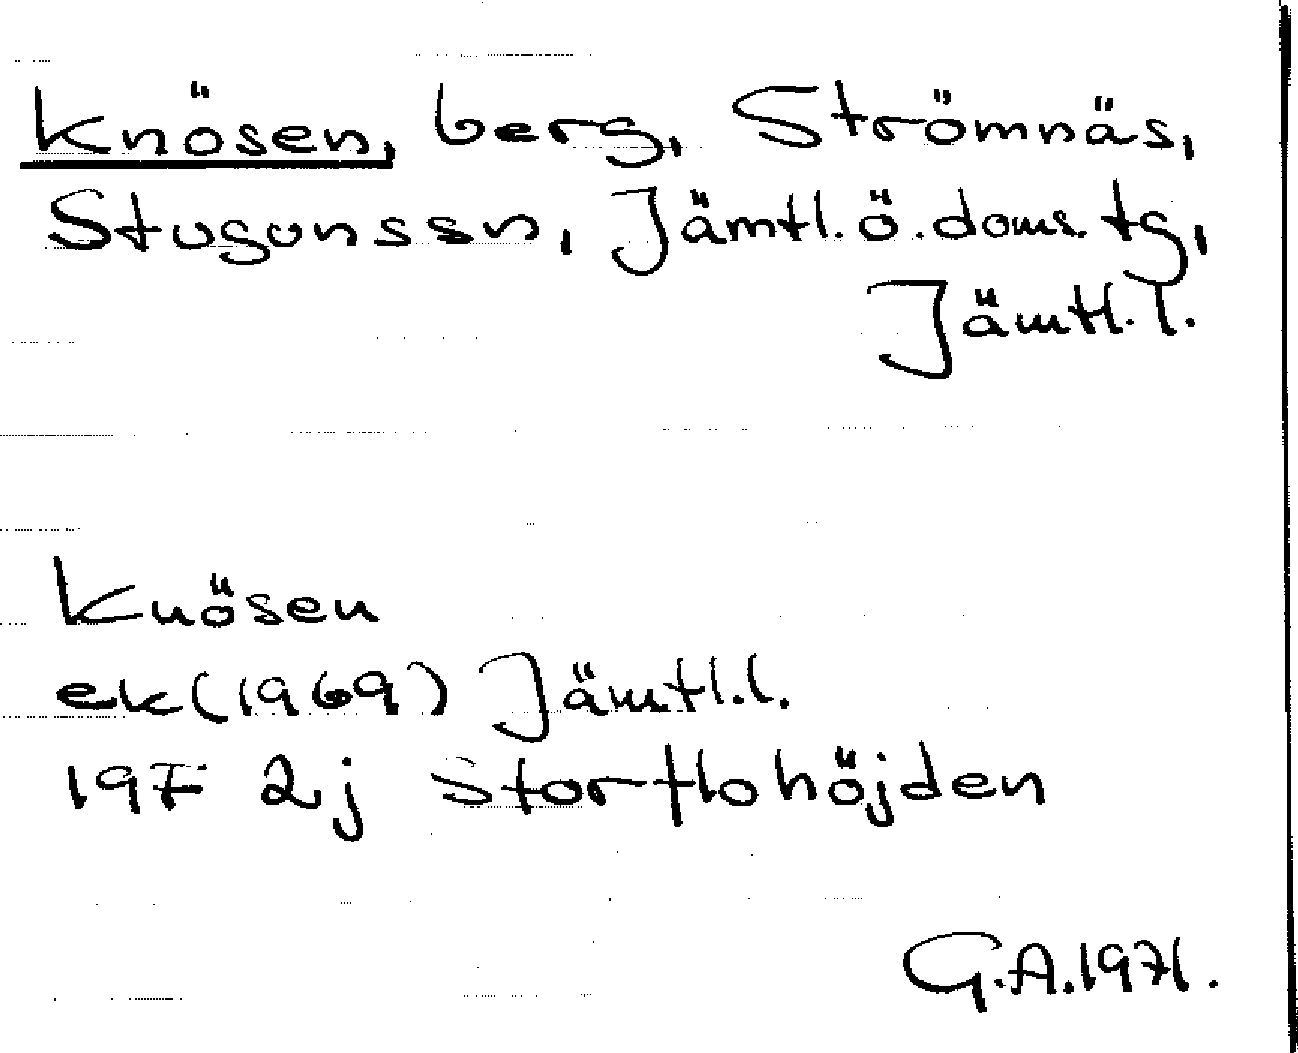 Knösen, berg, Strömnäs,
Stugunssn, Jämtl. ö. doms. tg,
Jämtl. l.
Knösen
ek (1969) Jämtl. l.
19F 2j Storflohöjden
G.A. 1971.